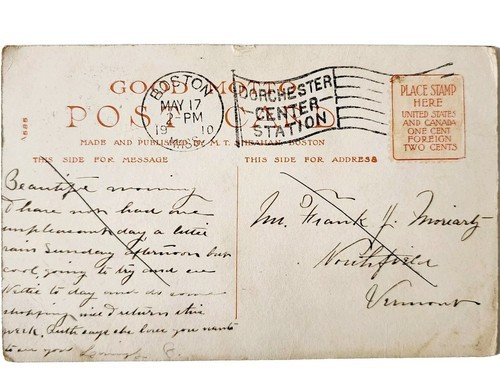 GOOD MOTTO
POST CARD
MADE AND PUBLISHED BY M. T. SHEAHAN, BOSTON
THIS SIDE FOR MESSAGE
THIS SIDE FOR ADDRESS
BOSTON
MAY 17
2-PM
19 10
MASS.
DORCHESTER
CENTER
STATION
PLACE STAMP
HERE
UNITED STATES
AND CANADA
ONE CENT
FOREIGN
TWO CENTS
Beautiful morning
I have not had one
unpleasant day a little
rain Sunday afternoon but
cool, going to try and see
Nettie to day and do some
shopping will return this
week. Ruth says she loves you wants
to see you
Mr. Frank J. Moriarty
Northfield
Vermont